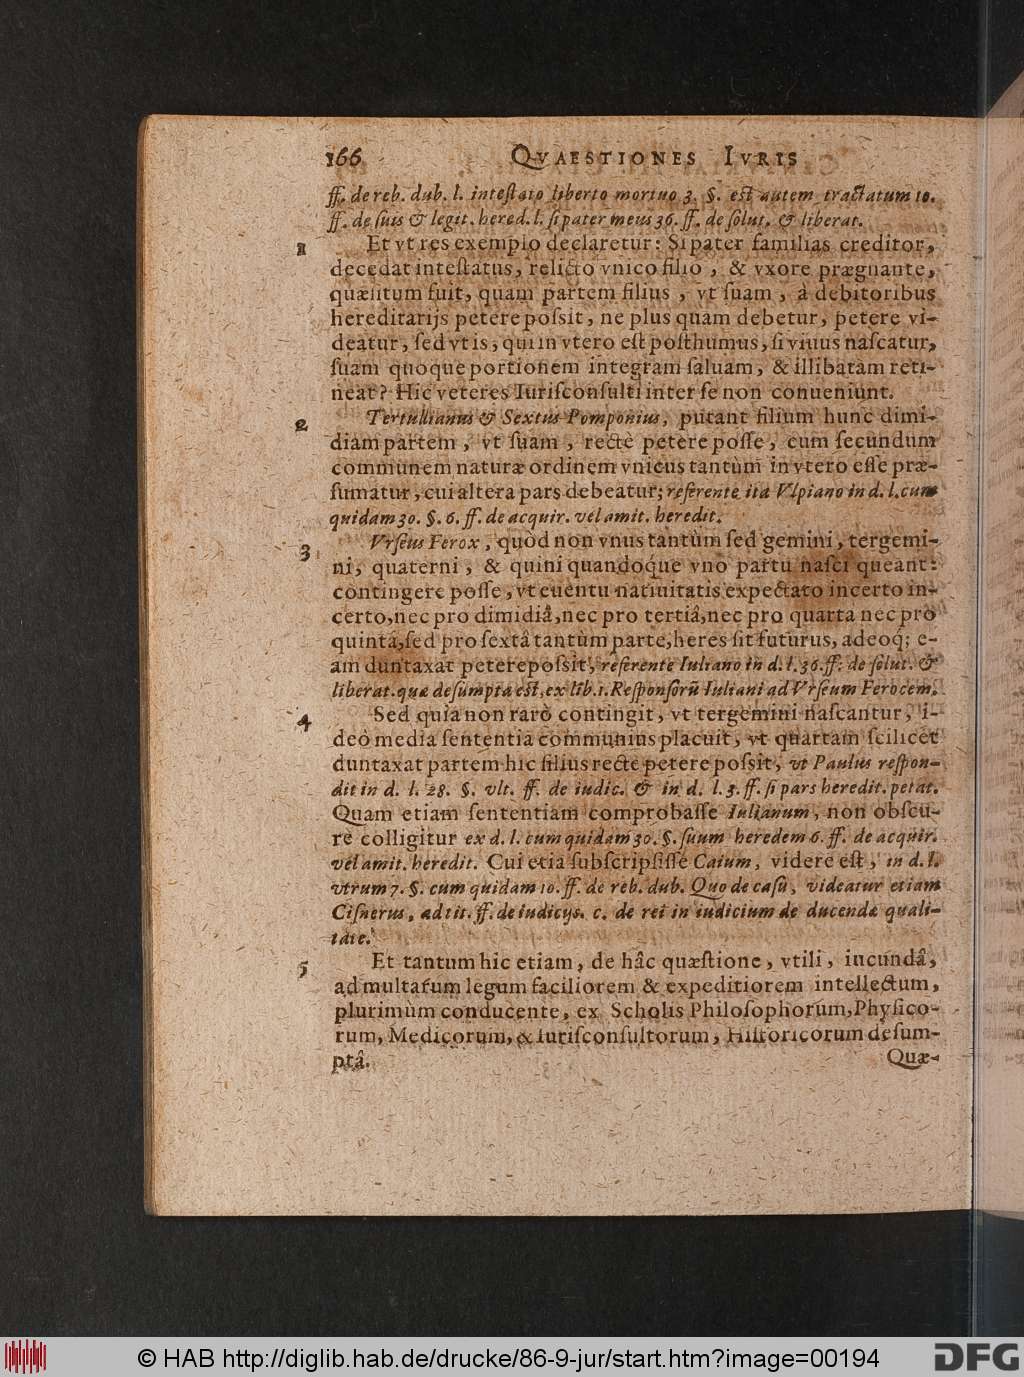 166 QVAESTIONES IVRIS
ff. de reb. dub. l. inteſtato liberto mortuo 3. §. eſt autem tractatum 10.
ff. de ſuis & legit. hered. l. ſi pater meus 36. ff. de ſolut. & liberat.
1 Et vt res exemplo declaretur: Si pater familias creditor,
decedat inteſtatus, relicto vnico filio, & vxore prægnante,
quæſitum fuit, quam partem filius, vt ſuam, à debitoribus
hereditarijs petere poſsit, ne plus quàm debetur, petere vi-
deatur, ſed vt is, qui in vtero eſt poſthumus, ſi viuus naſcatur,
ſuam quoque portionem integram ſaluam, & illibatam reti-
neat? Hic veteres Iuriſconſulti inter ſe non conueniunt.
2 Tertullianus & Sextus Pomponius, putant filium hunc dimi-
diam partem, vt ſuam, rectè petere poſſe, cum ſecundum
communem naturæ ordinem vnicus tantùm in vtero eſſe præ-
ſumatur, cui altera pars debeatur; referente ita Vlpiano in d. l. cum
quidam 30. §. 6. ff. de acquir. vel amit. heredit.
3 Vrſeius Ferox, quòd non vnus tantùm ſed gemini, tergemi-
ni, quaterni, & quini quandoq́ue vno partu naſci queant:
contingere poſſe, vt euentu natiuitatis expectato incerto in-
certo, nec pro dimidiâ, nec pro tertiâ, nec pro quarta nec pro
quintâ, ſed pro ſextâ tantùm parte, heres ſit futurus, adeoq́; e-
am duntaxat petere poſsit, referente Iuliano in d. l. 36. ff. de ſolut. &
liberat. quæ deſumpta eſt, ex lib. 1. Reſponſorũ Iuliani ad Vrſeum Ferocem.
4 Sed quia non rarò contingit, vt tergemini naſcantur, i-
deò media ſententia communius placuit, vt quartam ſcilicet
duntaxat partem hic filius rectè petere poſsit, vt Paulus reſpon-
dit in d. l. 28. §. vlt. ff. de iudic. & in d. l. 3. ff. ſi pars heredit. petat.
Quam etiam ſententiam comprobaſſe Iulianum, non obſcu-
rè colligitur ex d. l. cum quidam 30. §. ſuum heredem 6. ff. de acquir.
vel amit. heredit. Cui etiã ſubſcripſiſſe Caium, videre eſt, in d. l.
vtrum 7. §. cum quidam 10. ff. de reb. dub. Quo de caſu, videatur etiam
Ciſnerus, ad tit. ff. de iudicijs. c. de rei in iudicium de ducendæ quali-
tate.
5 Et tantum hic etiam, de hâc quæſtione, vtili, iucundâ,
ad multarum legum faciliorem & expeditiorem intellectum,
plurimùm conducente, ex Scholis Philoſophorum, Phyſico-
rum, Medicorum, & Iuriſconſultorum, Hiſtoricorum deſum-
ptâ.
Quæ-
© HAB http://diglib.hab.de/drucke/86-9-jur/start.htm?image=00194
DFG